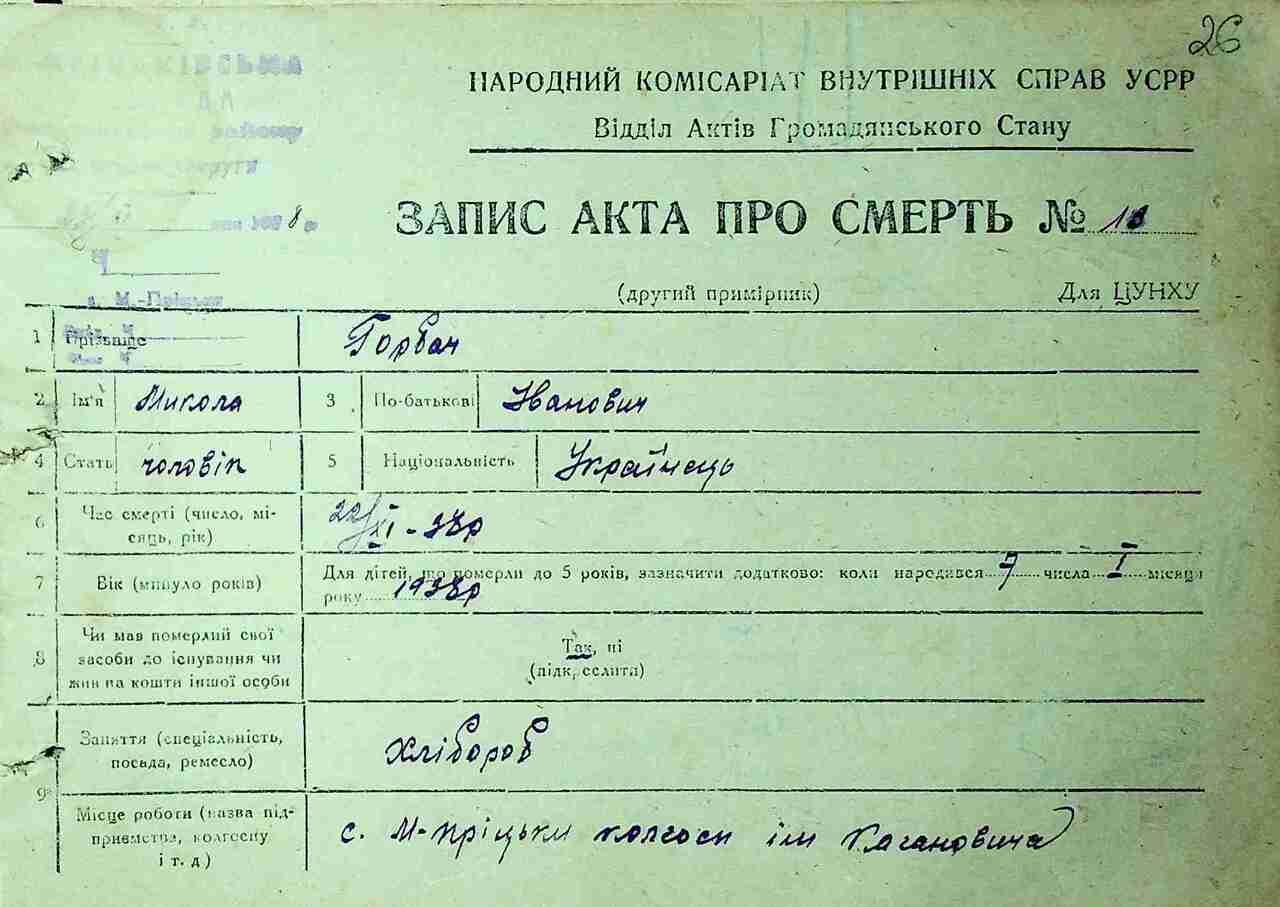 26
НАРОДНИЙ КОМІСАРІАТ ВНУТРІШНІХ СПРАВ УСРР
Відділ Актів Громадянського Стану
району
округи
8 р
ЗАПИС АКТА ПРО СМЕРТЬ № 10
(другий примірник) Для ЦУНХУ
с. М.-Пріцьки
1 Прізвище Горбач
2 Ім'я Микола 3 По-батькові Іванович
4 Стать чоловік 5 Національність Українець
6 Час смерті (число, мі-
сяць, рік) 22/XI-38р
7 Вік (минуло років) Для дітей, що померли до 5 років, зазначити додатково: коли народився 7 числа I місяця
року 1938р
8 Чи мав померлий свої
засоби до існування чи
жив на кошти іншої особи
Так, ні
(підкреслити)
9 Заняття (спеціальність,
посада, ремесло) Хлібороб
Місце роботи (назва під-
приємства, колгоспу
і т. д.)
с. М-Пріцьки колгосп ім Кагановича